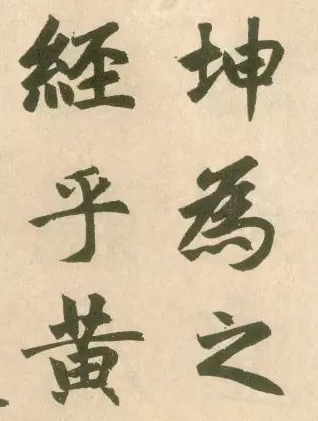 坤為之
經乎黄